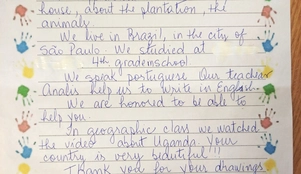 house, about the plantation, the
animals.
We live in Brazil, in the city of
São Paulo. We studied at
4th grademschool
We speak postuguese. Our teacher
Analis help us to write in English.
We are honored to be able to
help you.
In geographic class we watched
the video about Uganda. Your
country is very beautiful!!!
Thank you for your drawings